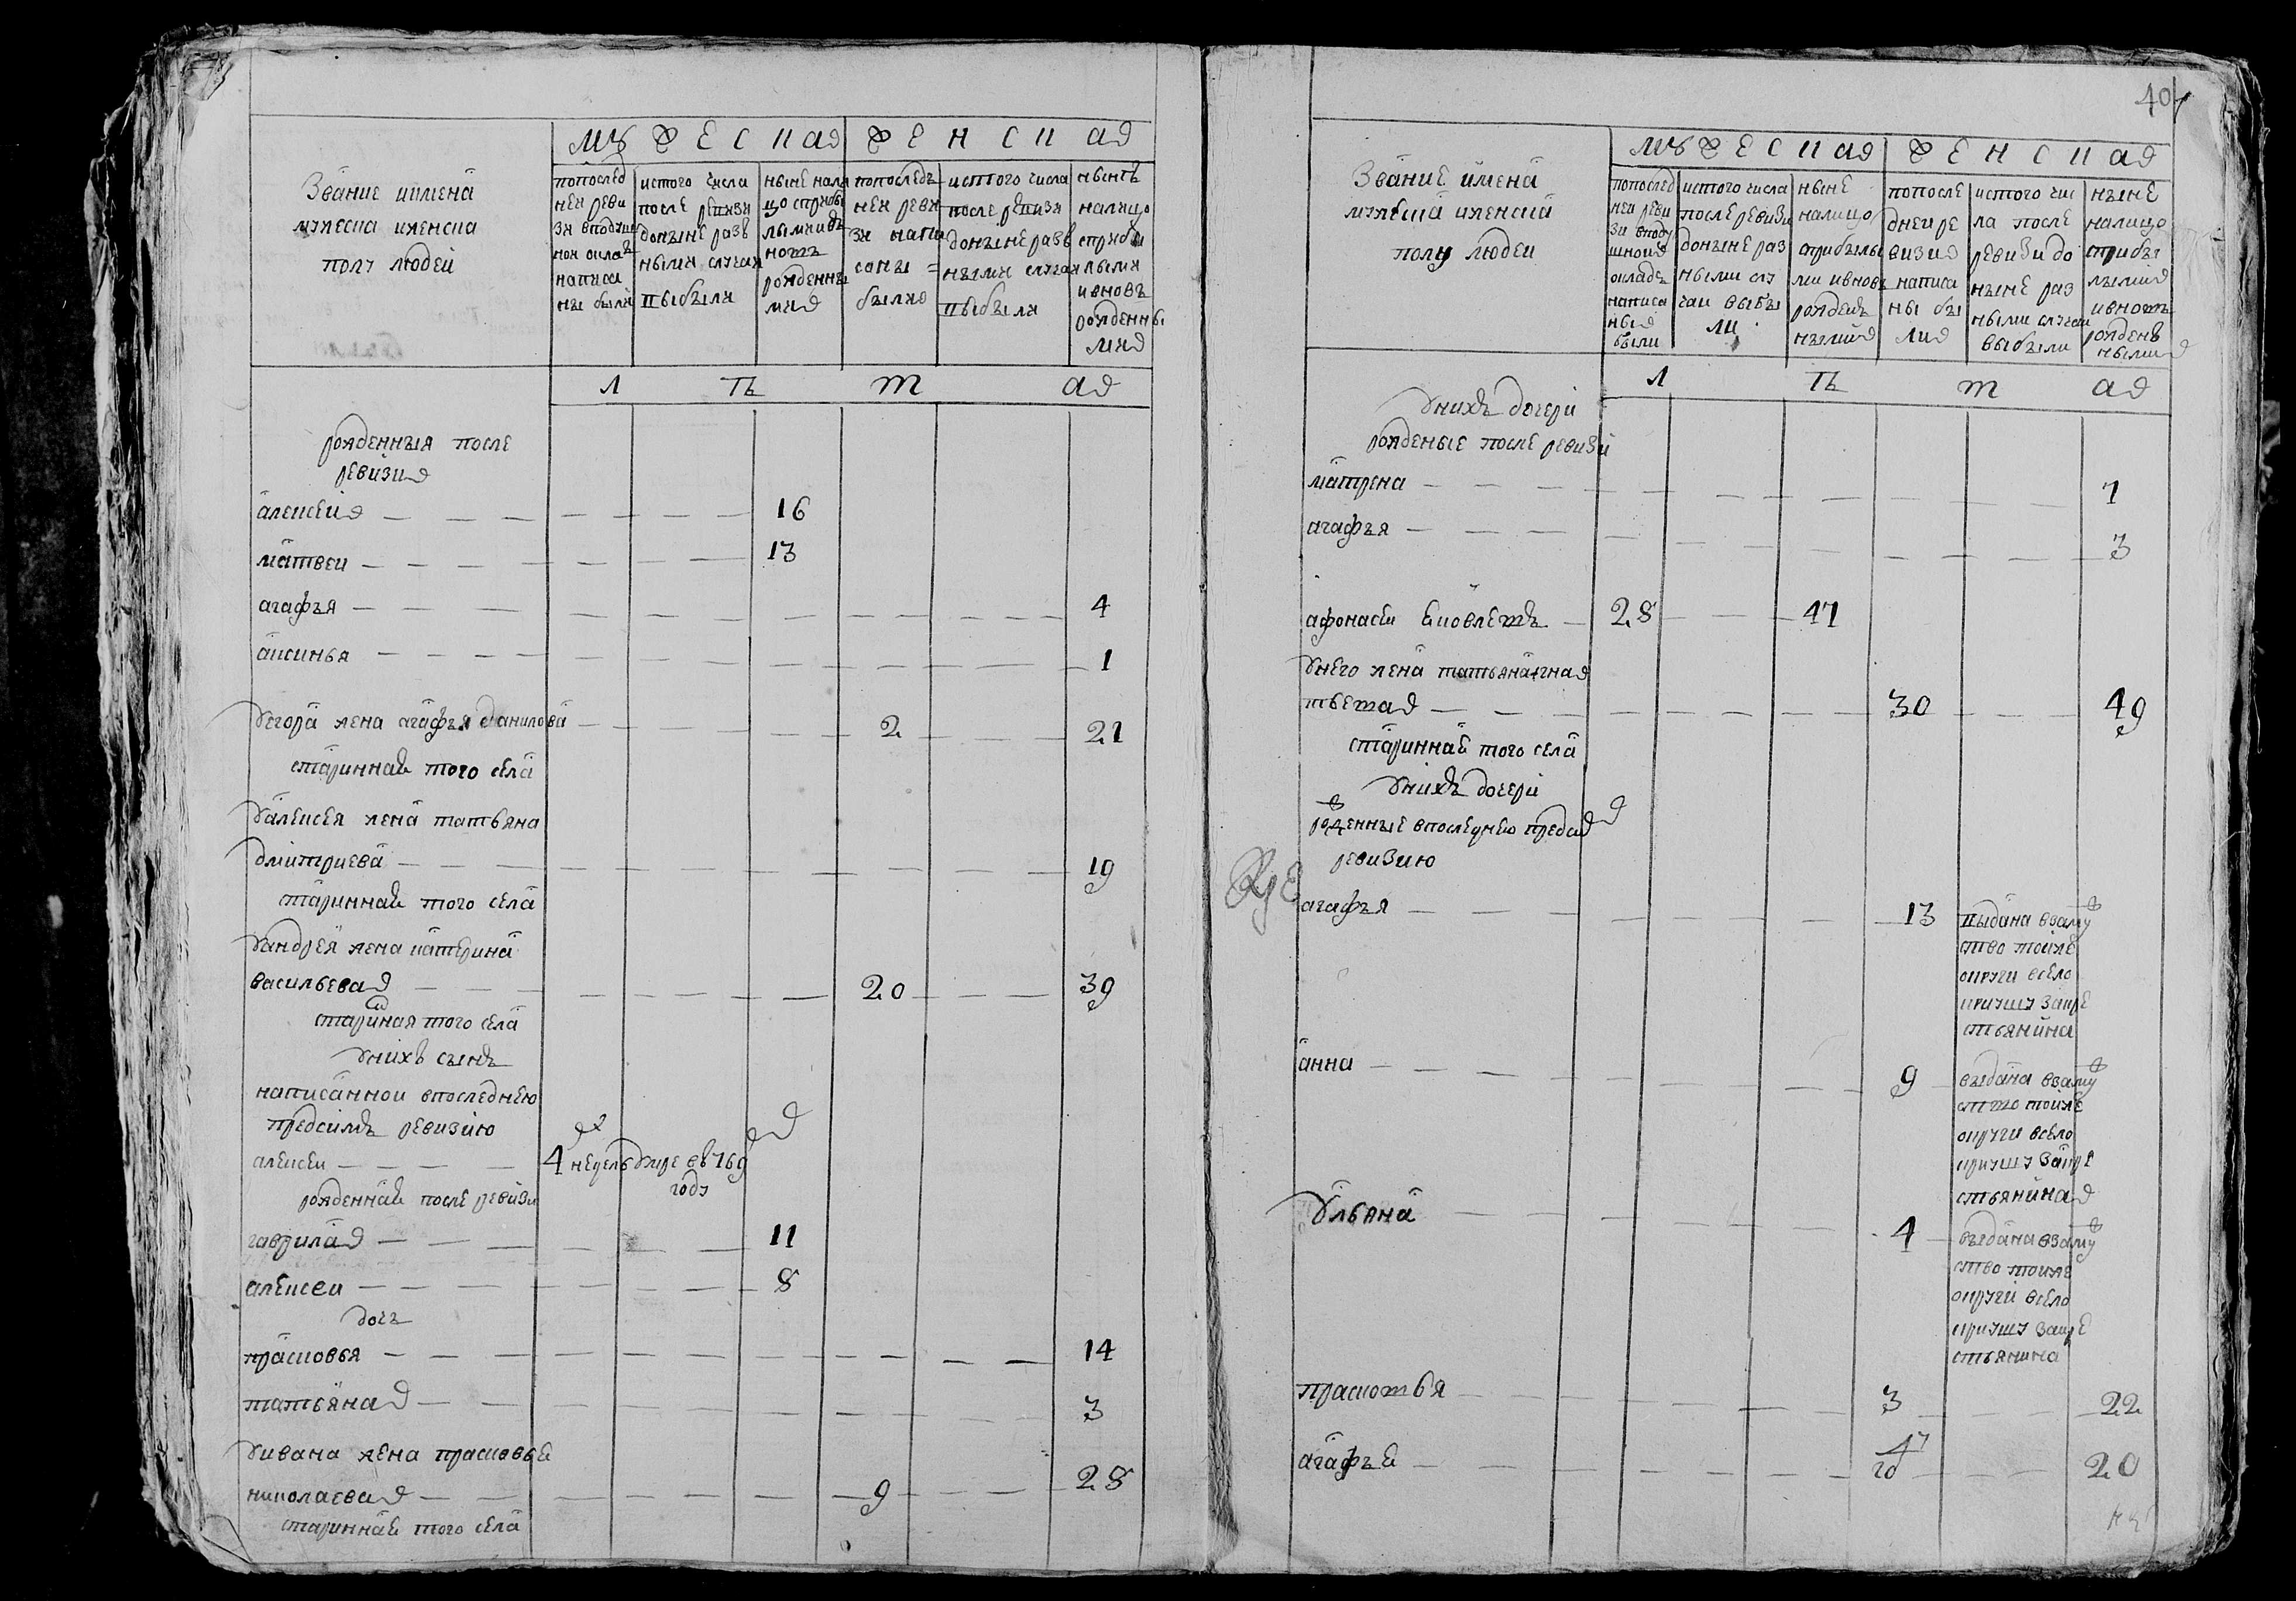 мужеска
женска
звание имена
мужеска и женска
полу людей
по послед
ней реви
зи в подуш
ном окладъ
написа
ны были
ис того числа
после ревизи
до ныне разъ
ными случаи
выбыли
ныне нали
цо с прибы
лыми и въ
новъ
рожденны
мид
по последъ
ней реви
зи напи
саны
были
ис того числа
после ревизи
до ныне разъ
ными случаи
выбыли
нынѣ
налицо
с прибы
лыми
и вновъ
рожденны
ми
л ѣ т а
рожденныя после
ревизи
алексей 16
матвеи 13
агафья 4
аксинья 1
у егора жена агафья данилова 2 21
стариннай того села
у алексея жена татьяна
дмитриева 19
стариннай того села
у андрея жена катерина
васильева 20 39
стариная того села
у них сынъ
написанной в последнею
пред симъ ревизию
алексеи 4 недель умре в 769
году
рожденнай после ревизи
гаврила 11
алексеи 8
дочь
прасковья 14
татьяна 3
у ивана жена прасковья
николаева 9 28
стариннай того села
40
мужеска
женска
звание имена
мужеска и женска
полу людеи
по послед
ней реви
зи в поду
шном
окладѣ
написа
ны
были
ис того числа
после ревизи
до ныне раз
ными слу
чаи выбы
ли
ныне
налицо
с прибылы
ми и вновь
рожденъ
ными
по после
днеи ре
визи
написа
ны бы
ли
ис того чис
ла после
ревизи до
ныне раз
ными случаи
выбыли
ныне
налицо
с прибы
лыми
и вновь
рожденъ
ными
л ѣ т а
у нихъ дочери
рожденые после ревизи
матрена 7
агафья 3
афонасеи яковлевъ 28 47
у него жена татьяна игна
тьева 30 49
стариннай того села
у нихъ дочери
рожденные в последнею пред сим
ревизию
агафья 13 выдана в замуж
ство той же
округи в село
крушу за кре
стьянина
анна 9 выдана в замуж
ство той же
округи в село
крушу за кре
стьянина
ульяна 4 выдана в замуж
ство той же
округи в село
крушу за кре
стьянина
прасковья 3 22
агафья 1 20
год